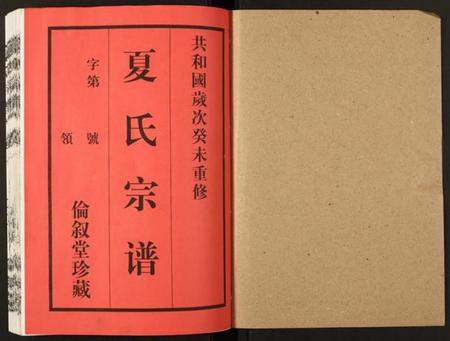 共和國歲次癸未重修
夏氏宗谱
字第
號
領
倫叙堂珍藏